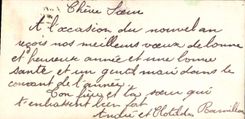 Chère Sœur
A l'occasion du nouvel an
reçois nos meilleurs vœux de bonne
et heureuse année et une bonne
santé et un gentil mari dans le
courant de l'année.
Ton frère et ta sœur qui
t'embrassent bien fort
André et Clotilde